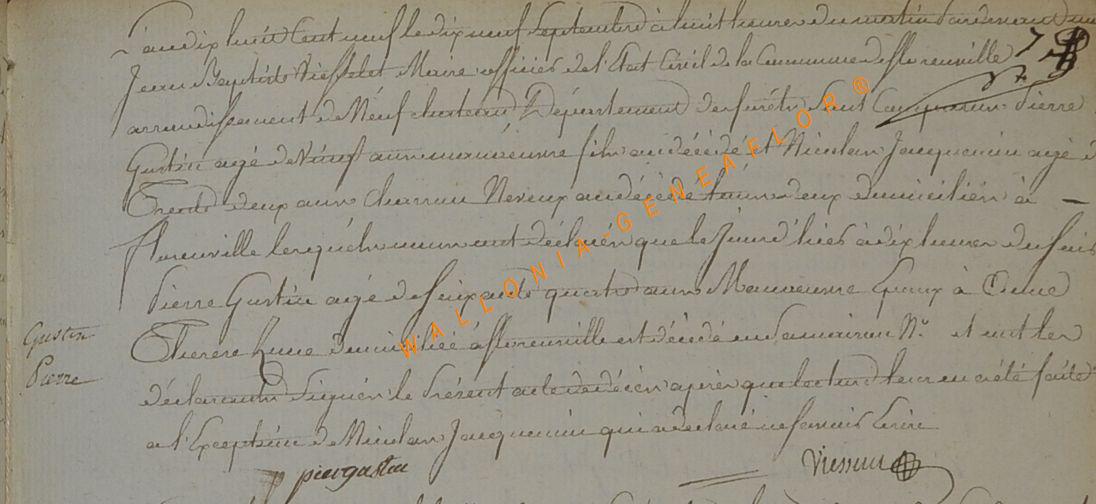 L'an dix huit Cent neuf le dix neuf Septembre à huit heures du matin Pardevant nous
Jean Baptiste Maire officier de l'Etat Civil de la Commune de florenville
arrondissement de Neufchateau Département de forêts Sont Comparus Pierre
Gustin agé de Vingt ans manoeuvre fils au décédé et Nicolas Jacquemin agé de
Trente deux ans Charron Neveux au décédé tous deux domiciliés à
florenville lesquels nous ont déclarés que le jour d'hier à dix heures du soir
Pierre Gustin agé de soixante quatre ans Manoeuvre Epoux à Dame
Therese domiciliée à florenville est décédé en Sa maison N.º et ont les
déclarants Signés le Présent acte de décès après que lecture leur en a été faite
à l'Exception de Nicolas Jacquemin qui a déclaré ne savoir Ecrire
Gustin
Pierre
pier gustin
WALLONIA-GENEAFLOR ®